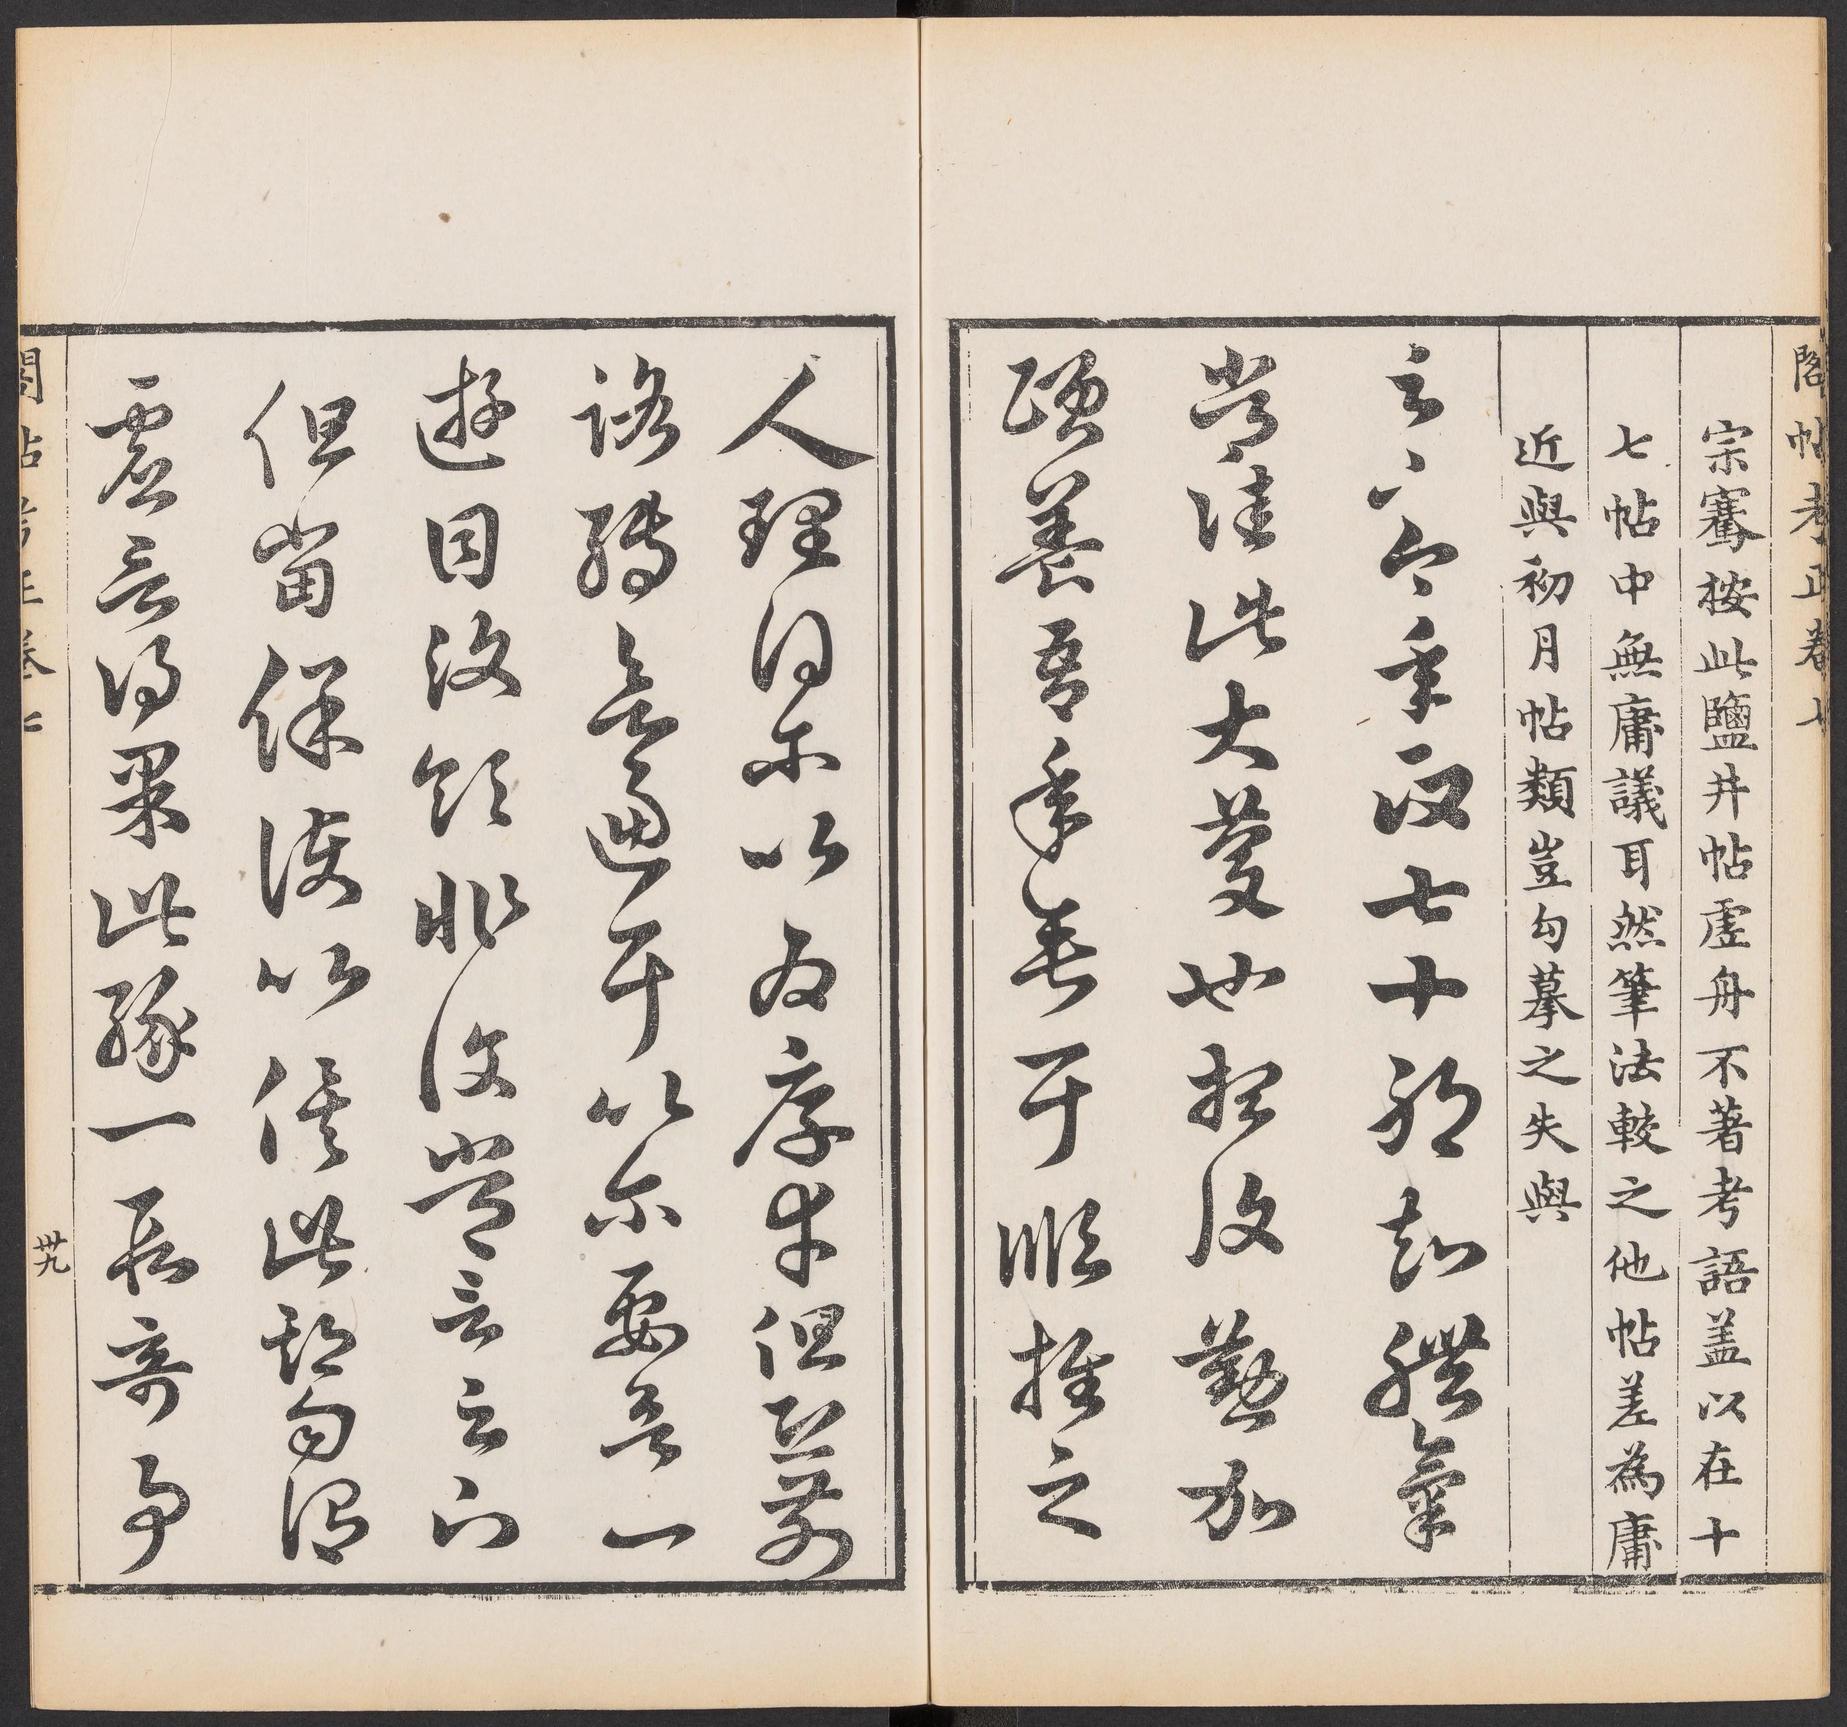 閣帖考正卷七
宗騫按此鹽井帖虛舟不著考語盖以在十
七帖中無庸議耳然筆法較之他帖差為庸
近與初月帖類豈勾摹之失與
足下今年政七十耶知體氣
常佳此大慶也想復懃加
頤養吾年垂耳順推之
人理得尔以為厚幸但恐前
路轉欲逼耳以尔要欲一
遊目汶領非復常言足下
但當保護以俟此期勿謂
虛言得果此緣一段奇事
閣帖考正卷七
卅九